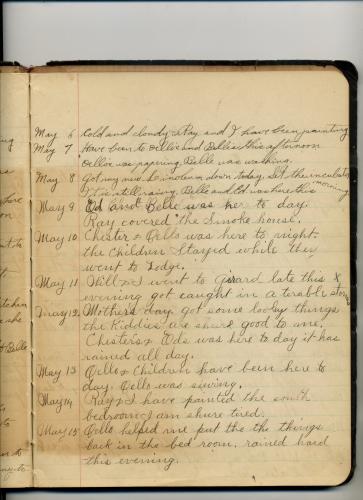 May 6 Cold and cloudy. Ray and I have been painting
May 7 Have been to Dellie and Belles this afternoon
Dellie was papering. Belle was washing.
May 8 Got rug and linoleum down today. Set the incubator
It is still raining. Belle and Ed was here this morning
May 9 Ed and Belle was her to day
Ray covered the smoke house.
May 10 Chester & Dells was here to night.
the Children Stayed while they
went to Lodge.
May 11 Will & I went to Girard late this
evening got caught in a terable storm
May 12 Mothers day. got some lovly things
the Kiddies are shure good to me.
Chester's & Eds was here to day it has
rained all day.
May 13 Dells & Children have been here to
day. Dells was sewing.
May 14 Ray & I have painted the south
bedroom I am shure tired.
May 15 Dells helped me put the the things
back in the bed room. rained hard
this evening.